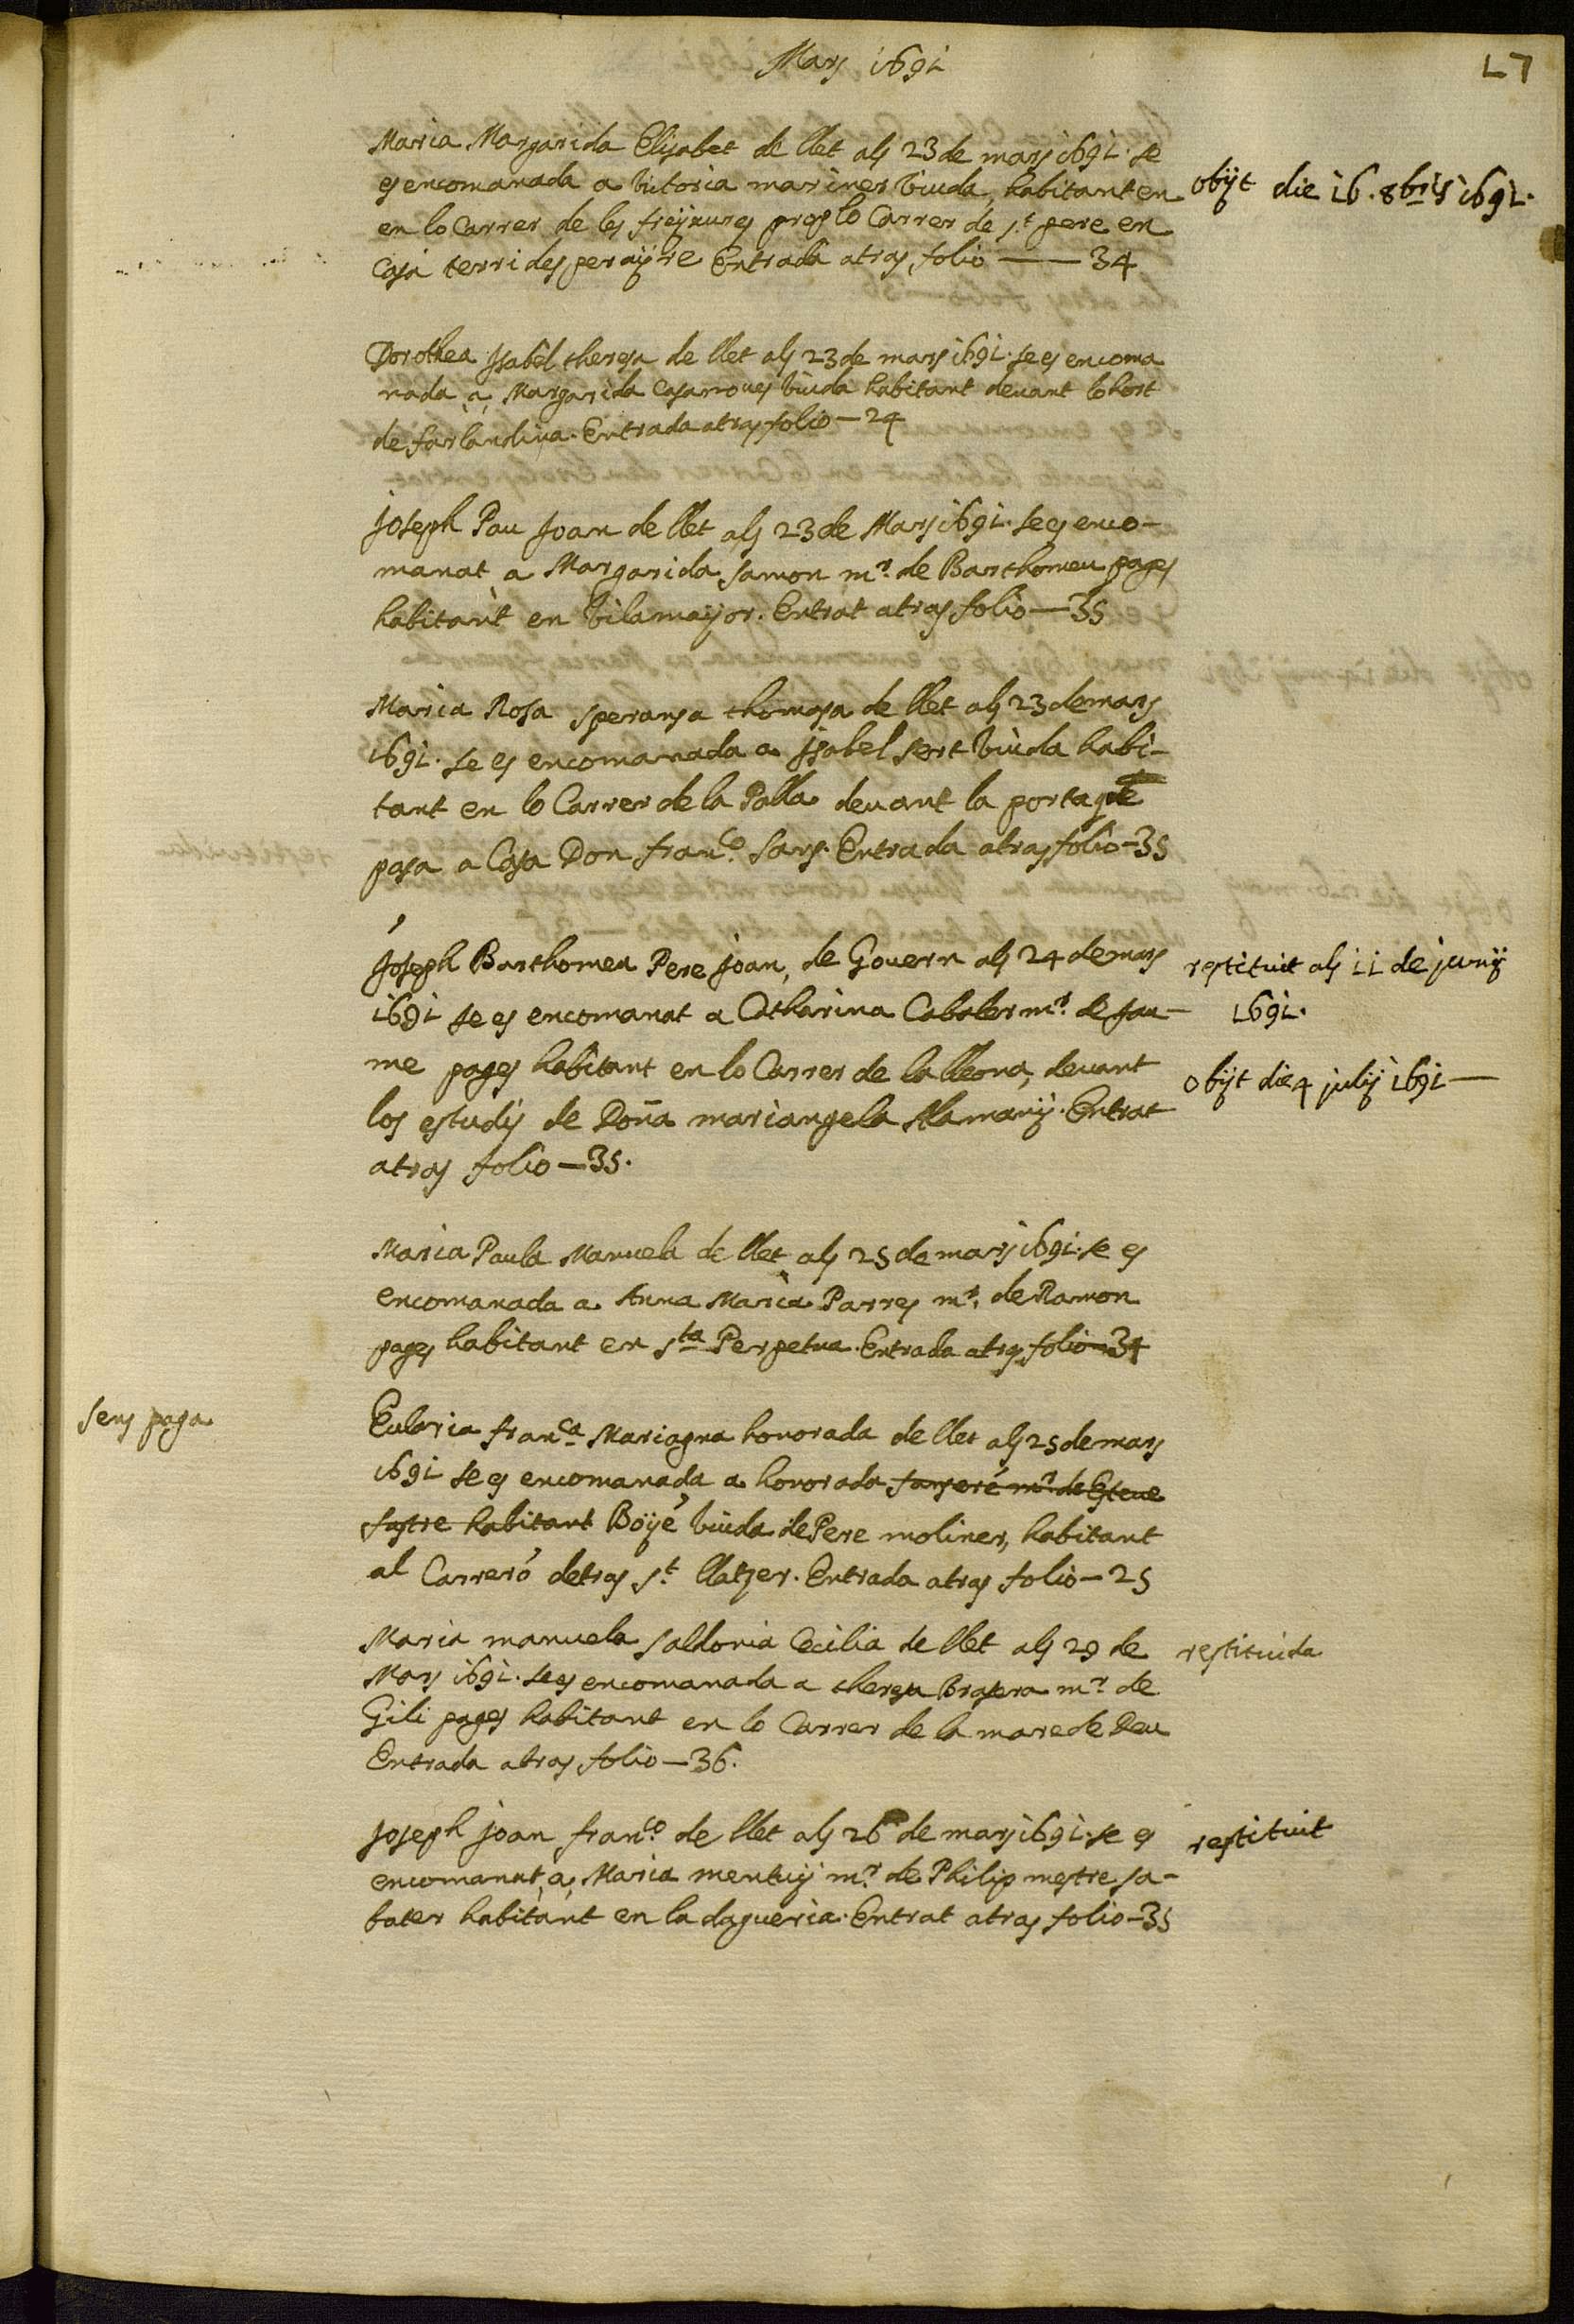 Mars 1691
L7
Maria Margarida Elisabet de llet als 23 de mars 1691. se
es encomanada a Victoria mariner viuda, habitant en
en lo Carrer de les freÿxures prop lo Carrer de s.t pere en
Casa terrides peraÿre Entrada atras folio —— 34
obÿt die 16. 8bris 1691.
Dorothea Isabel theresa de llet als 23 de mars 1691. se es encoma
nada a Margarida Casanoues viuda habitant deuant lo hort
de farlandina. Entrada atras folio — 24
Joseph Pau Joan de llet als 23 de Mars 1691. se es enco-
manat a Margarida samon m.r de Barthomeu pages
habitant en vilamaÿor. Entrat atras folio — 35
Maria Rosa speransa thomasa de llet als 23 de mars
1691. se es encomanada a Isabel sert viuda habi-
tant en lo Carrer de la Palla deuant la porta que
pasa a Casa Don fran.co sans. Entrada atras folio - 35
Joseph Barthomeu Pere Joan, de Gouern als 24 de mars
1691 se es encomanat a Catharina Cabaler m.r de Jau-
me pages habitant en lo Carrer de la lleona, deuant
los estudis de Doña mariangela Alamanÿ. Entrat
atras folio — 35.
restituit als 11 de junÿ
1691.
obÿt die 4 julij 1691 —
Maria Paula Manuela de llet als 25 de mars 1691. se es
encomanada a Anna Maria Parres m.r de Ramon
pages habitant en s.ta Perpetua. Entrada atras folio — 34
sens paga
Eularia fran.ca Mariagna honorada de llet als 25 de mars
1691 se es encomanada a honorada sanseré m.r de Esteue
sastre habitant Boÿé viuda de Pere moliner, habitant
al Carreró detras s.t llatzer. Entrada atras folio — 25
Maria manuela saldonia Cecilia de llet als 29 de
Mars 1691. se es encomanada a theresa Brasera m.r de
Gili pages habitant en lo Carrer de la mare de Deu
Entrada atras folio — 36.
restituida
Joseph Joan fran.co de llet als 26 de mars 1691. se es
encomanat, a, Maria mentuÿ m.r de Philip mestre sa-
bater habitant en la dagueria. Entrat atras folio - 35
restituit